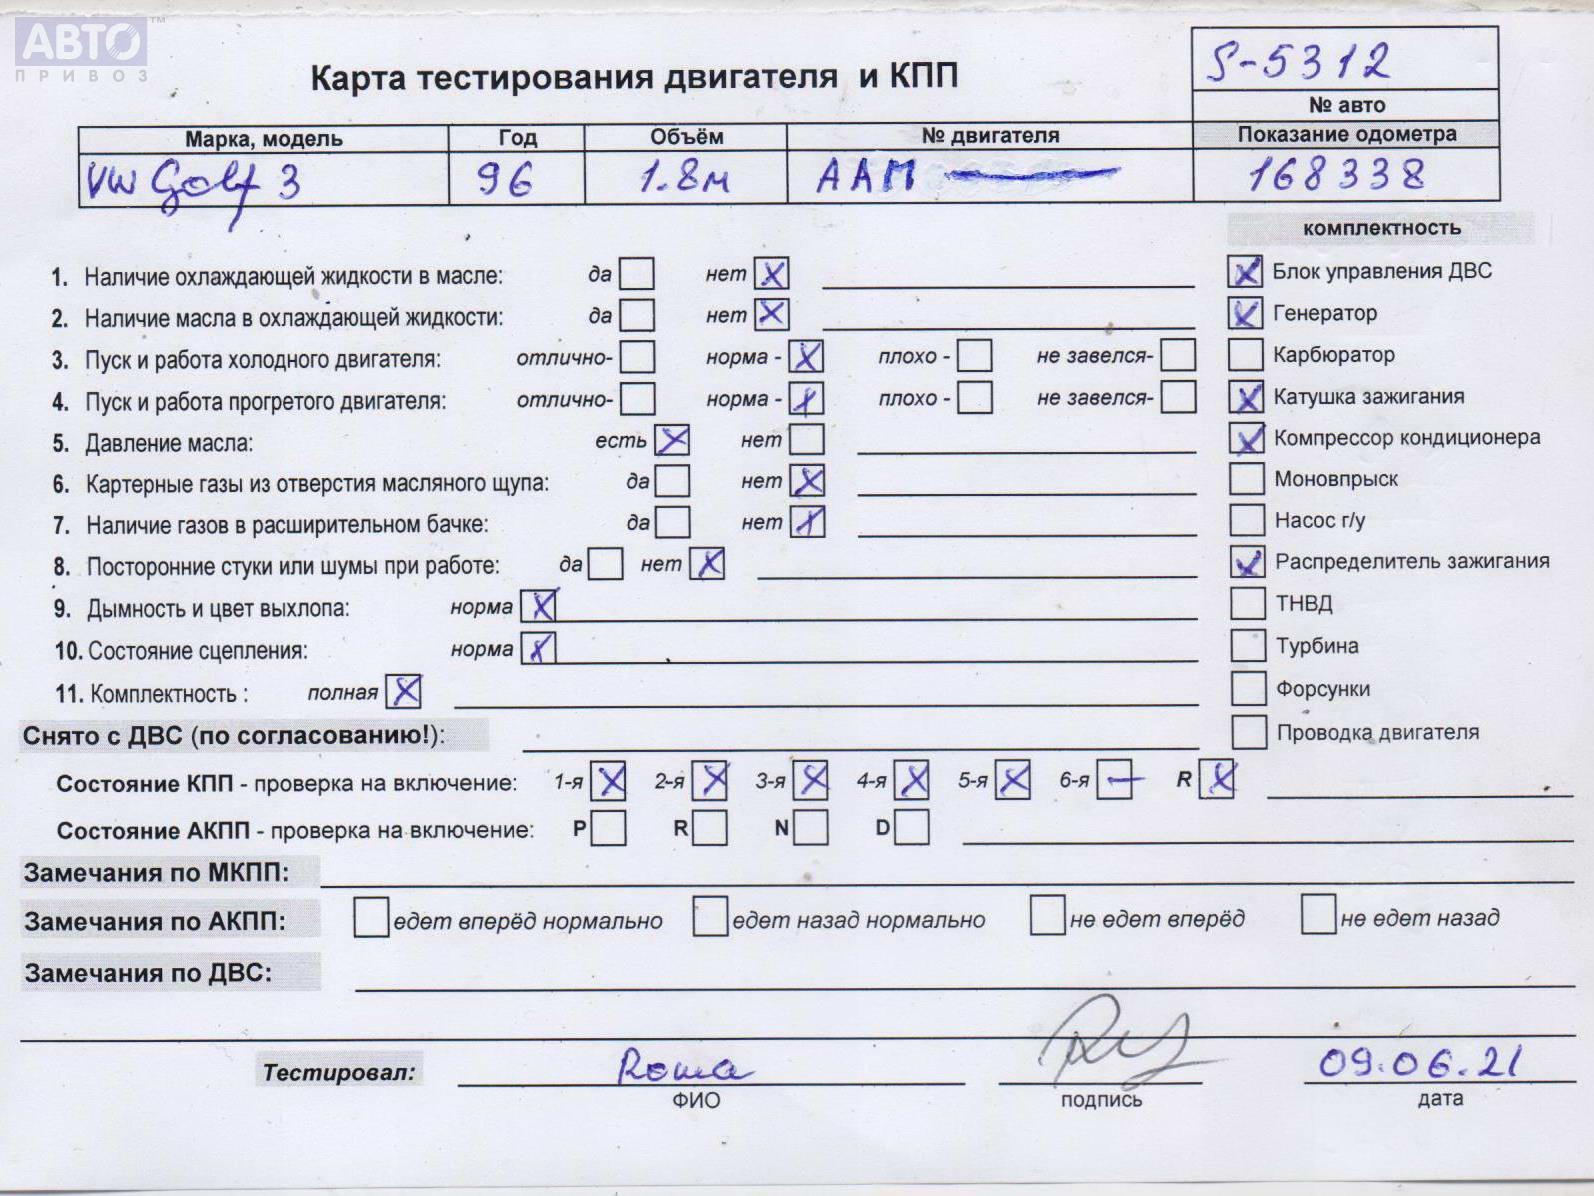 АВТО™
ПРИВОЗ
Карта тестирования двигателя и КПП
S-5312
№ авто
Марка, модель Год Объём № двигателя Показание одометра
VW Golf 3 96 1.8м ААМ 168338
комплектность
1. Наличие охлаждающей жидкости в масле: да нет X
Блок управления ДВС X
2. Наличие масла в охлаждающей жидкости: да нет X
Генератор X
3. Пуск и работа холодного двигателя: отлично- норма - X плохо - не завелся-
Карбюратор
4. Пуск и работа прогретого двигателя: отлично- норма - X плохо - не завелся-
Катушка зажигания X
5. Давление масла: есть X нет
Компрессор кондиционера X
6. Картерные газы из отверстия масляного щупа: да нет X
Моновпрыск
7. Наличие газов в расширительном бачке: да нет X
Насос г/у
8. Посторонние стуки или шумы при работе: да нет X
Распределитель зажигания X
9. Дымность и цвет выхлопа: норма X
ТНВД
10. Состояние сцепления: норма X
Турбина
11. Комплектность : полная X
Форсунки
Снято с ДВС (по согласованию!):
Проводка двигателя
Состояние КПП - проверка на включение: 1-я X 2-я X 3-я X 4-я X 5-я X 6-я — R X
Состояние АКПП - проверка на включение: P R N D
Замечания по МКПП:
Замечания по АКПП: едет вперёд нормально едет назад нормально не едет вперёд не едет назад
Замечания по ДВС:
Тестировал: Roma 09.06.21
ФИО подпись дата